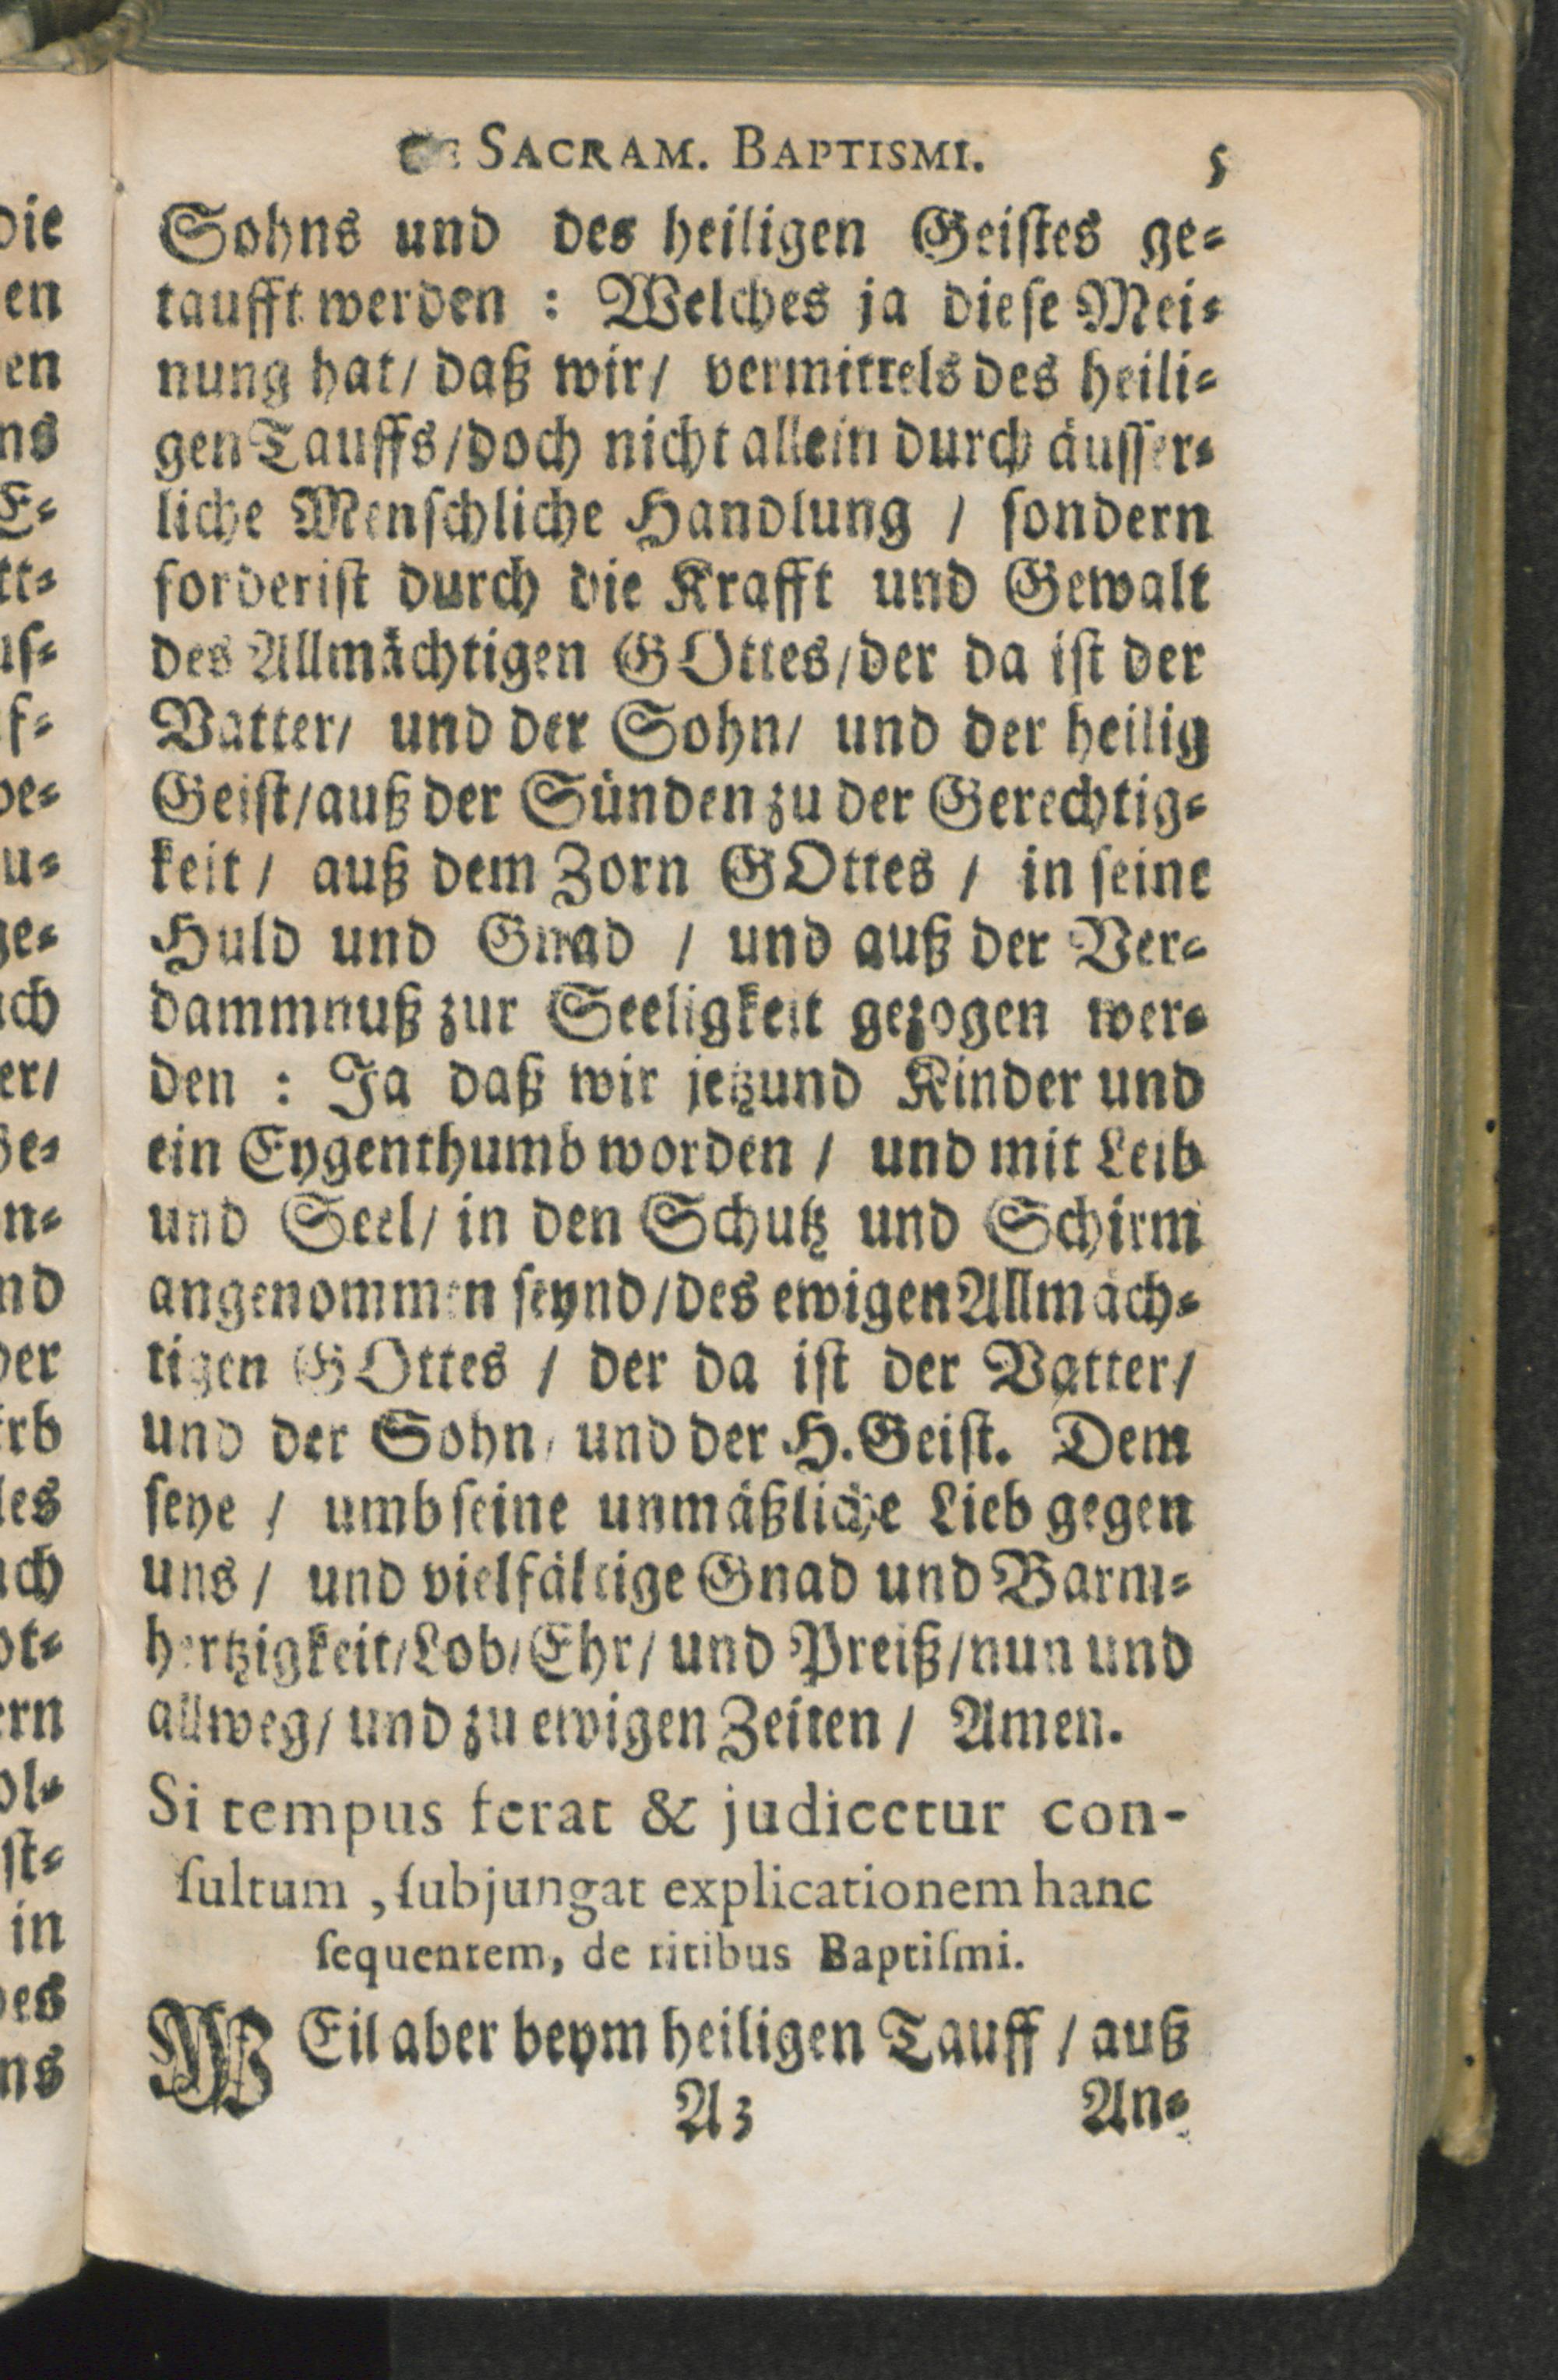 De SACRAM. BAPTISMI. 5
Sohns und des heiligen Geiſtes ge⸗
taufft werden : Welches ja dieſe Mei⸗
nung hat / daß wir / vermittels des heili⸗
gen Tauffs / doch nicht allein durch äuſſer⸗
liche Menſchliche Handlung / ſondern
forderiſt durch die Krafft und Gewalt
des Allmächtigen GOttes / der da iſt der
Vatter / und der Sohn / und der heilig
Geiſt / auß der Sünden zu der Gerechtig⸗
keit / auß dem Zorn GOttes / in ſeine
Huld und Gnad / und auß der Ver⸗
dammnuß zur Seeligkeit gezogen wer⸗
den : Ja daß wir jetzund Kinder und
ein Eygenthumb worden / und mit Leib
und Seel / in den Schutz und Schirm
angenommen ſeynd / des ewigen Allmäch⸗
tigen GOttes / der da iſt der Vatter /
und der Sohn / und der H. Geiſt. Dem
ſeye / umb ſeine unmäßliche Lieb gegen
uns / und vielfältige Gnad und Barm⸗
hertzigkeit / Lob / Ehr / und Preiß / nun und
allweg / und zu ewigen Zeiten / Amen.
Si tempus ferat & judicetur con-
ſultum , ſubjungat explicationem hanc
ſequentem, de ritibus Baptiſmi.
WEil aber beym heiligen Tauff / auß
A3 An⸗